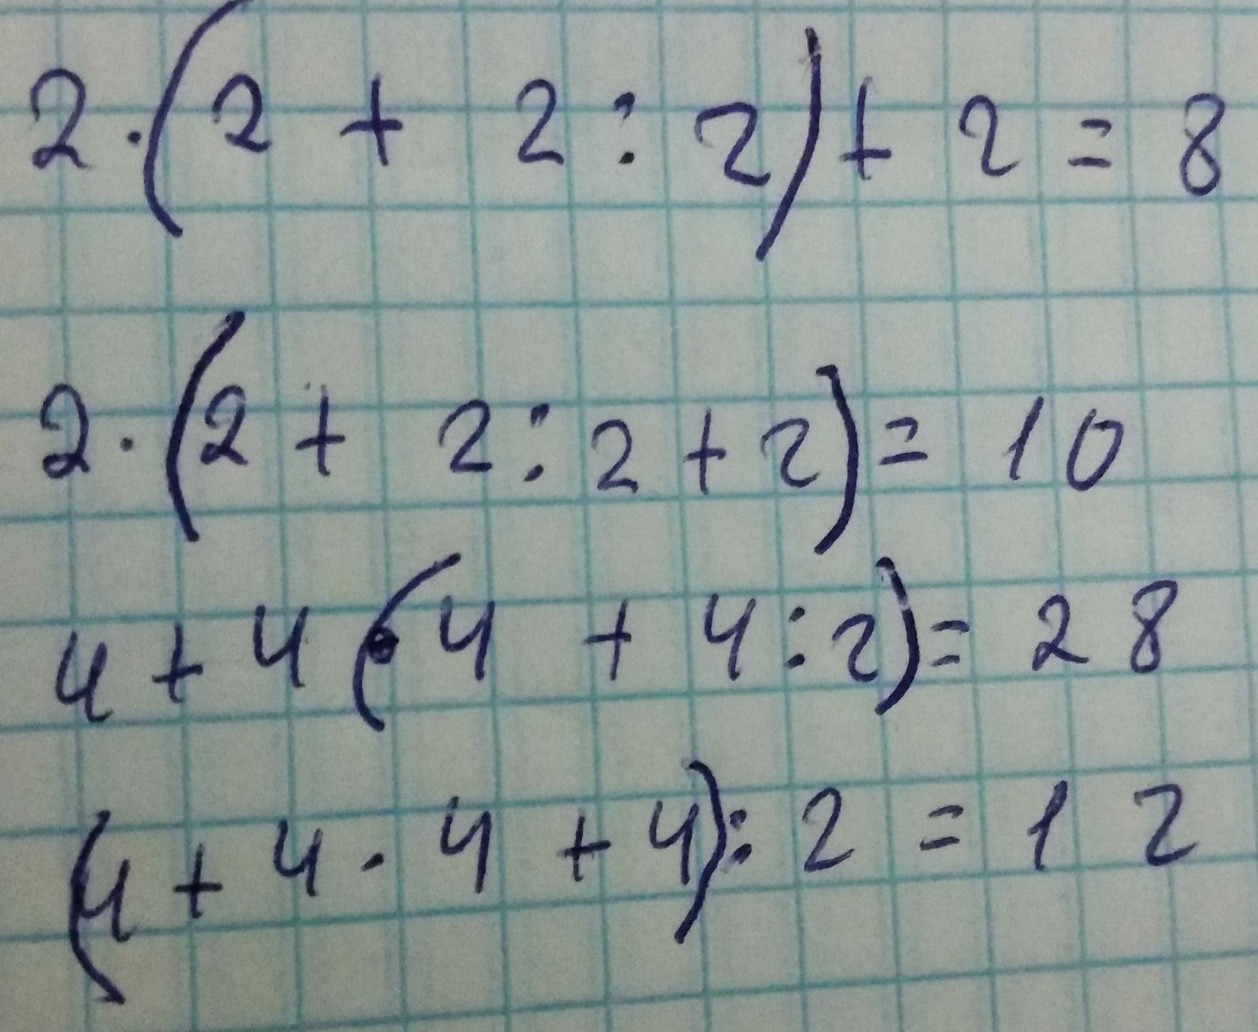 2·(2 + 2 : 2) + 2 = 8
2·(2 + 2 : 2 + 2) = 10
4 + 4 (· 4 + 4 : 2) = 28
(4 + 4 · 4 + 4) : 2 = 12